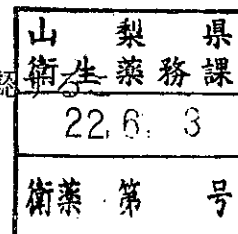 山梨県
認する
衛生薬務課
22.6.3
衛薬 第 号